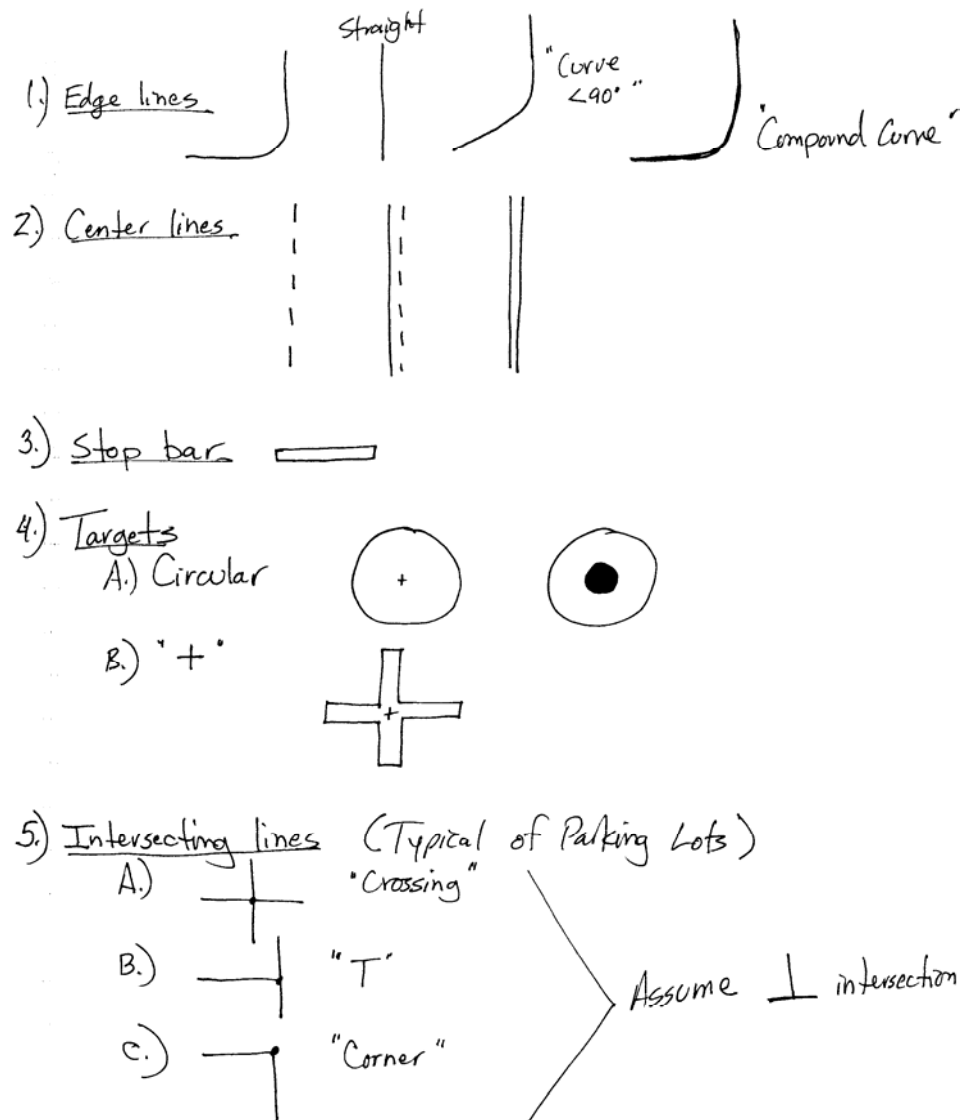 1.) Edge lines
Straight
"Curve
<90° "
"Compound Curve"
2.) Center lines
3.) Stop bar
4.) Targets
A.) Circular
B.) "+"
5.) Intersecting lines (Typical of Parking Lots)
A.) "Crossing"
B.) "T"
C.) "Corner"
Assume ⊥ intersection